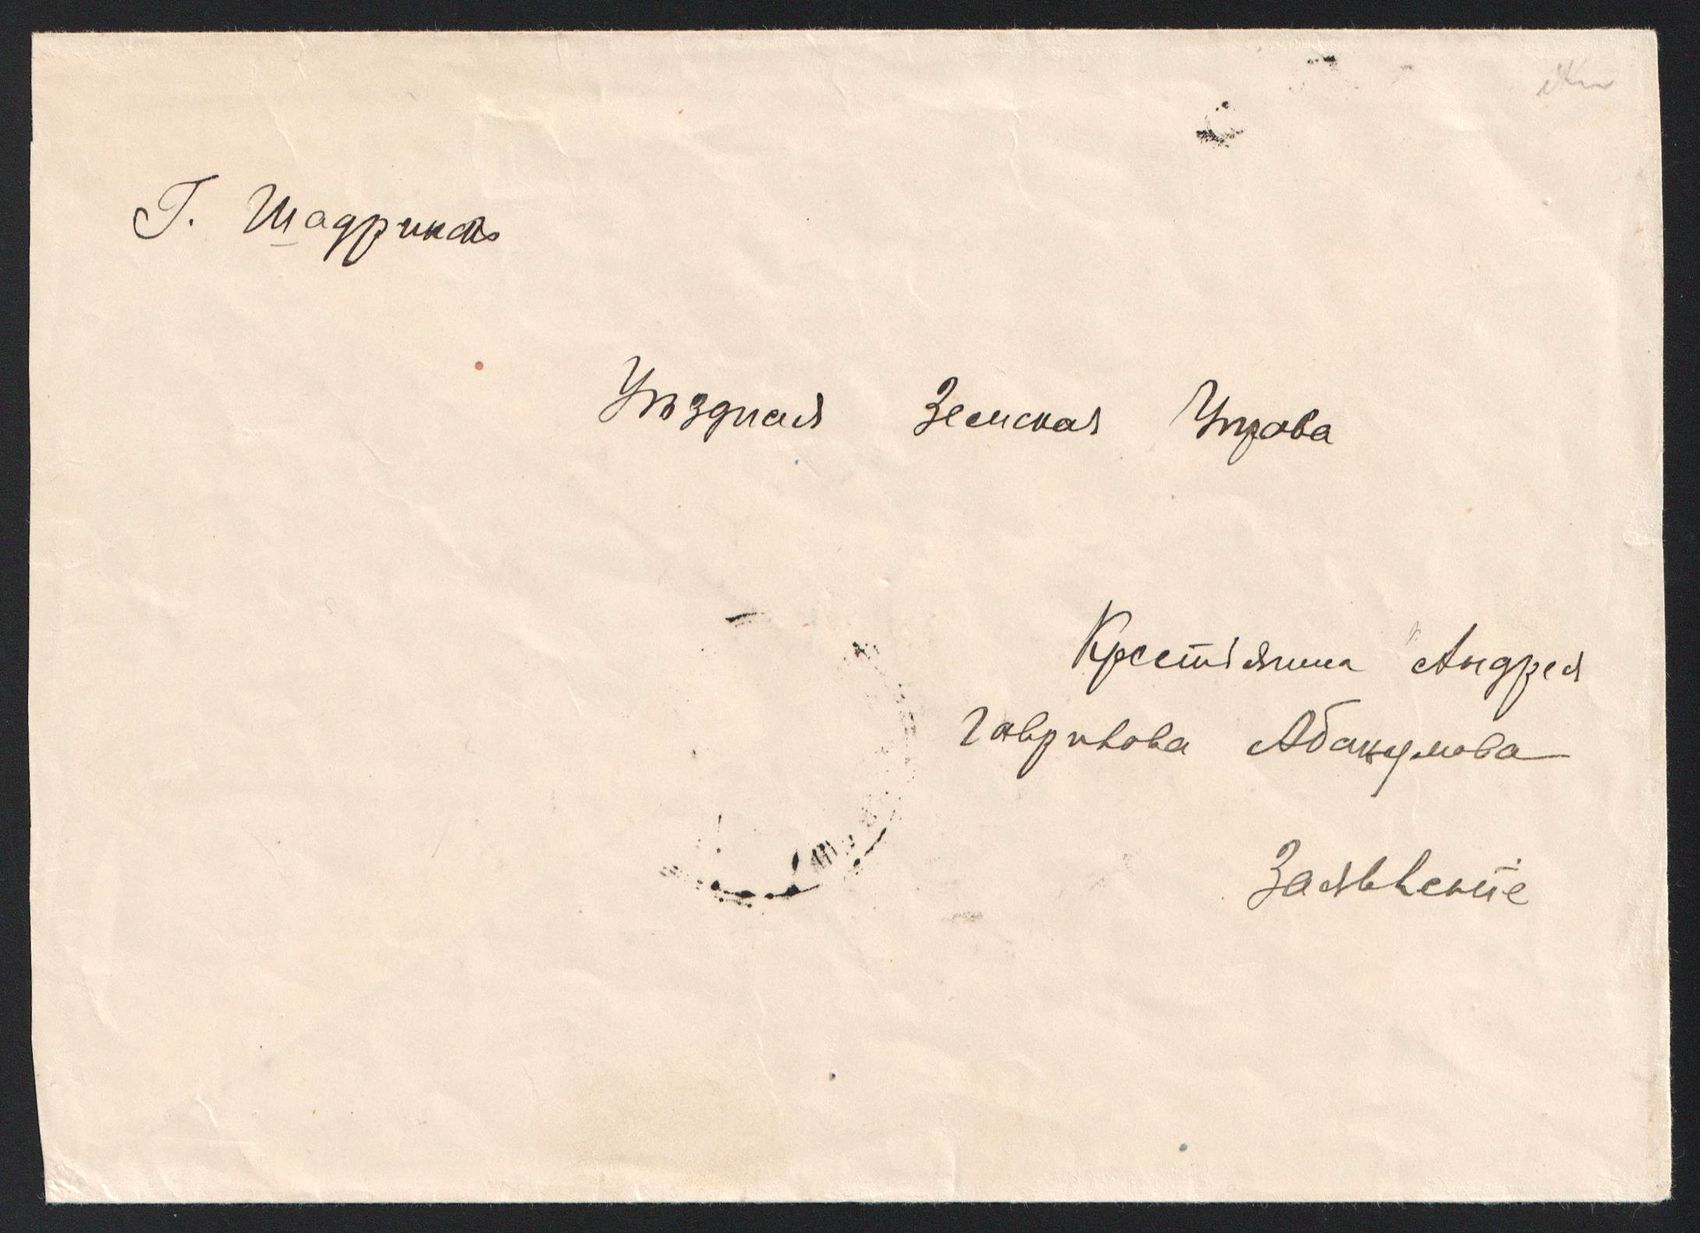 Г. Шадринскъ
Уѣздная Земская Управа
Крестіянина Андрея
Гаврилова Абакумова
Заявленіе